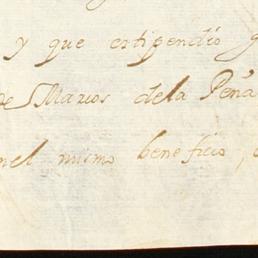 y que estipendio g
de Marcos dela Peña
nel mismo beneficio,